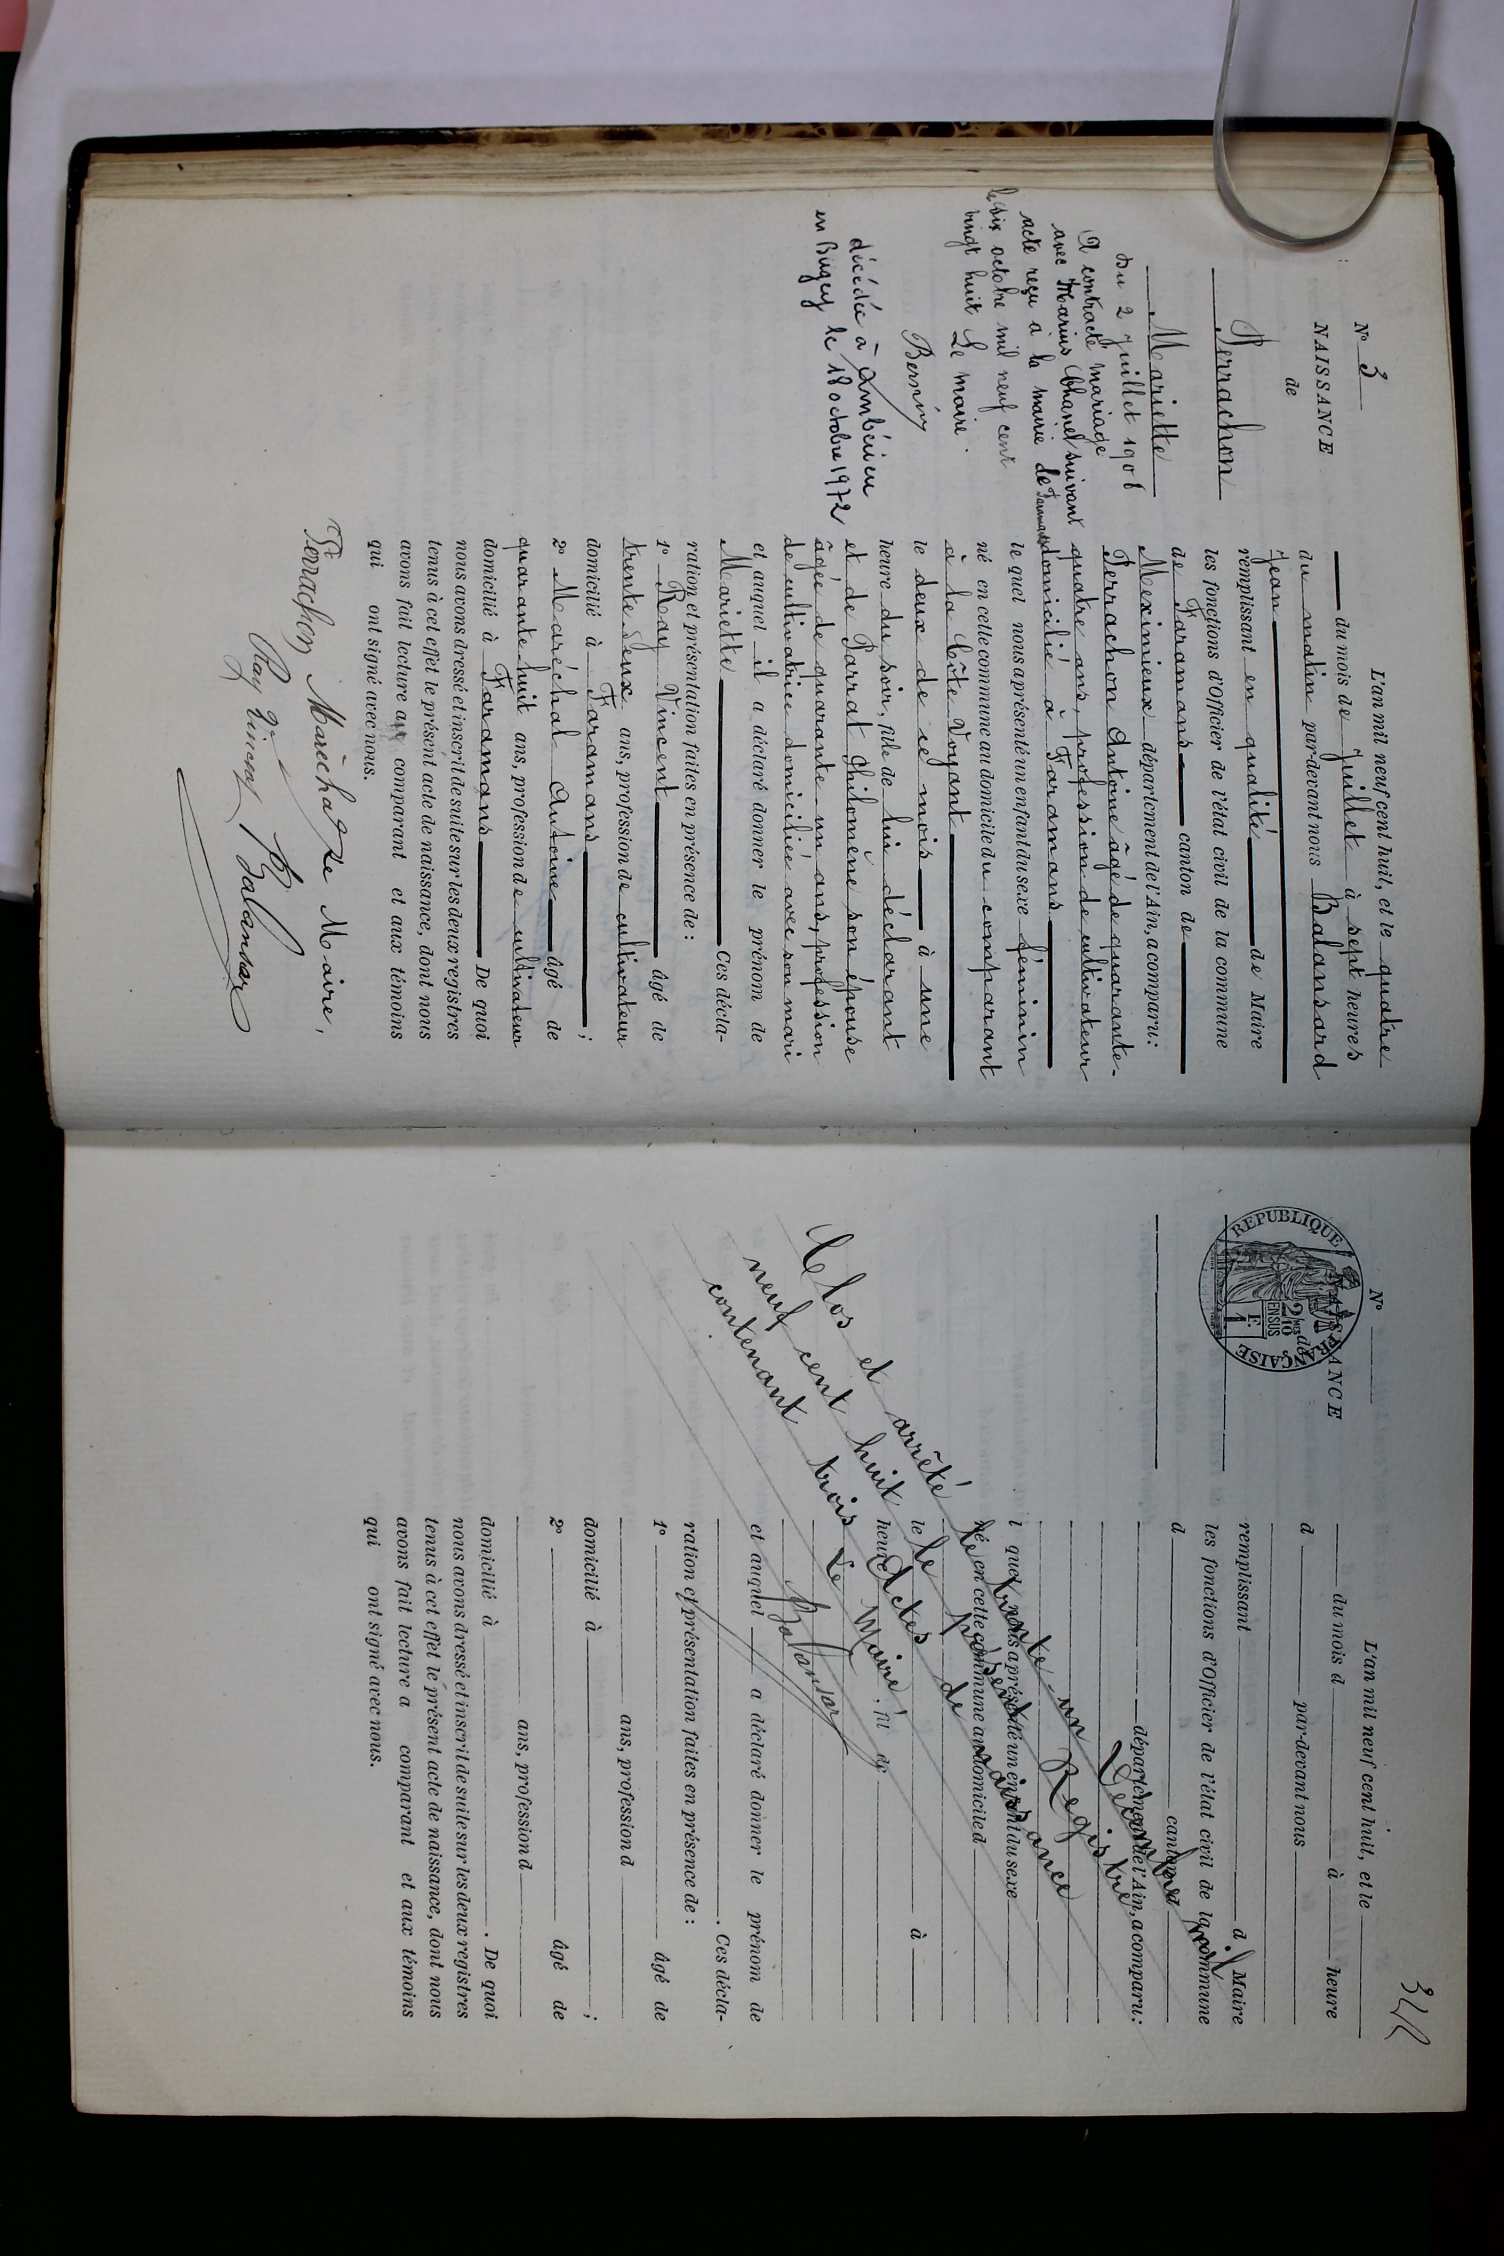 N° 3
NAISSANCE
de
Perrachon
Mariette
Du 2 Juillet 1908
A contracté mariage
avec Marius Chanel suivant
acte reçu à la mairie de Faramans
le dix octobre mil neuf cent
vingt huit Le maire.
décédée à Ambérieu
en Bugey le 18 octobre 1972
L'an mil neuf cent huit, et le quatre
du mois de Juillet à sept heures
du matin par-devant nous Balansard
Jean
remplissant en qualité de Maire
les fonctions d'Officier de l'état civil de la commune
de Faramans canton de
Meximieux département de l'Ain, a comparu:
Perrachon Antoine âgé de quarante-
quatre ans, profession de cultivateur
domicilié à Faramans
le quel nous a présenté un enfant du sexe féminin
né en cette commune au domicile du comparant
à la Côte Voyant
le deux de ce mois à une
heure du soir, fille de lui déclarant
et de Parrat Philomène son épouse
âgée de quarante-un ans, profession
de cultivatrice domiciliée avec son mari
et auquel il a déclaré donner le prénom de
Mariette Ces décla-
ration et présentation faites en présence de:
1° Ray Vincent âgé de
trente deux ans, profession de cultivateur
domicilié à Faramans ;
2° Maréchal Antoine âgé de
quarante huit ans, profession de cultivateur
domicilié à Faramans De quoi
nous avons dressé et inscrit de suite sur les deux registres
tenus à cet effet le présent acte de naissance, dont nous
avons fait lecture au comparant et aux témoins
qui ont signé avec nous.
Perrachon Maréchal Le Maire,
Ray Vincent Balansard
3
N°
NAISSANCE
de
REPUBLIQUE FRANÇAISE
2/10 EN SUS
1 F.
L'an mil neuf cent huit, et le
du mois d à heure
d par-devant nous
remplissant d Maire
les fonctions d'Officier de l'état civil de la commune
d canton d
département de l'Ain, a comparu:
l quel nous a présenté un enfant du sexe
né en cette commune au domicile d
le à
heure , fil de
et auquel a déclaré donner le prénom de
. Ces décla-
ration et présentation faites en présence de:
1° âgé de
ans, profession d
domicilié à ;
2° âgé de
ans, profession d
domicilié à . De quoi
nous avons dressé et inscrit de suite sur les deux registres
tenus à cet effet le présent acte de naissance, dont nous
avons fait lecture a comparant et aux témoins
qui ont signé avec nous.
Clos et arrêté le trente-un Décembre mil
neuf cent huit le présent Registre
contenant trois Actes de naissance
Le Maire
Balansard